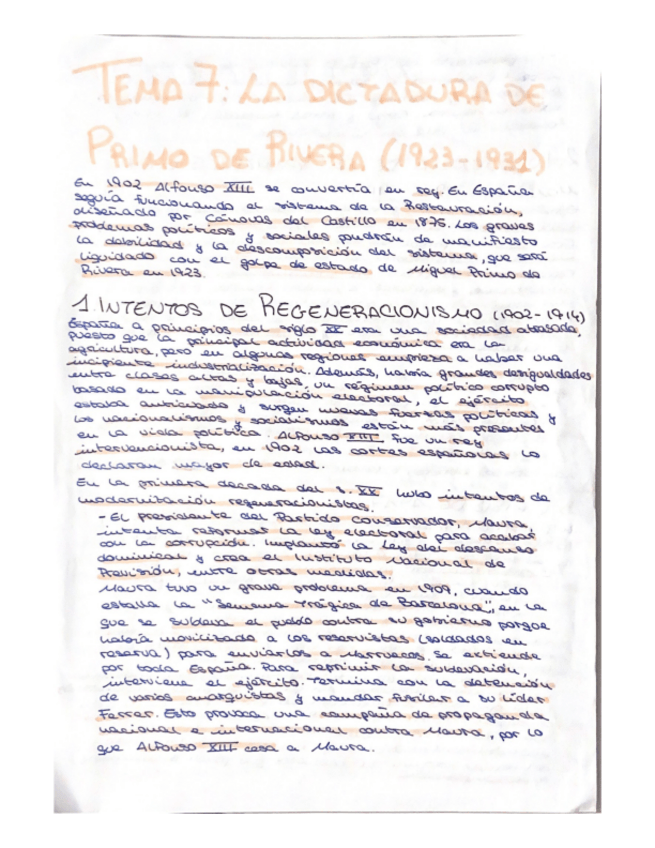 TEMA 7: LA DICTADURA DE
PRIMO DE RIVERA (1923-1931)
En 1902 Alfonso XIII se convertía en rey. En España
seguía funcionando el sistema de la Restauración,
diseñado por Cánovas del Castillo en 1876. Los graves
problemas políticos y sociales pondrán de manifiesto
la debilidad y la descomposición del sistema, que será
liquidado con el golpe de estado de Miguel Primo de
Rivera en 1923.
1. INTENTOS DE REGENERACIONISMO (1902-1914)
España a principios del siglo XX era una sociedad atrasada,
puesto que la principal actividad económica era la
agricultura, pero en algunas regiones empieza a haber una
incipiente industrialización. Además, había grandes desigualdades
entre clases altas y bajas, un régimen político corrupto
basado en la manipulación electoral, el ejército
estaba anticuado y surgen nuevas fuerzas políticas y
los nacionalismos y socialismos están más presentes
en la vida política. Alfonso XIII fue un rey
intervencionista, en 1902 las cortes españolas lo
declaran mayor de edad.
En la primera década del s. XX hubo intentos de
modernización regeneracionistas.
- El presidente del Partido Conservador, Maura,
intenta reformar la ley electoral para acabar
con la corrupción. Implantó la Ley del descanso
dominical y crea el Instituto Nacional de
Previsión, entre otras medidas.
Maura tuvo un grave problema en 1909, cuando
estalla la "Semana Trágica de Barcelona", en la
que se subleva el pueblo contra su gobierno porque
había movilizado a los reservistas (soldados en
reserva) para enviarlos a Marruecos. Se extiende
por toda España. Para reprimir la sublevación,
interviene el ejército. Termina con la detención
de varios anarquistas y mandar fusilar a su líder
Ferrer. Esto provoca una campaña de propaganda
nacional e internacional contra Maura, por lo
que Alfonso XIII cesa a Maura.